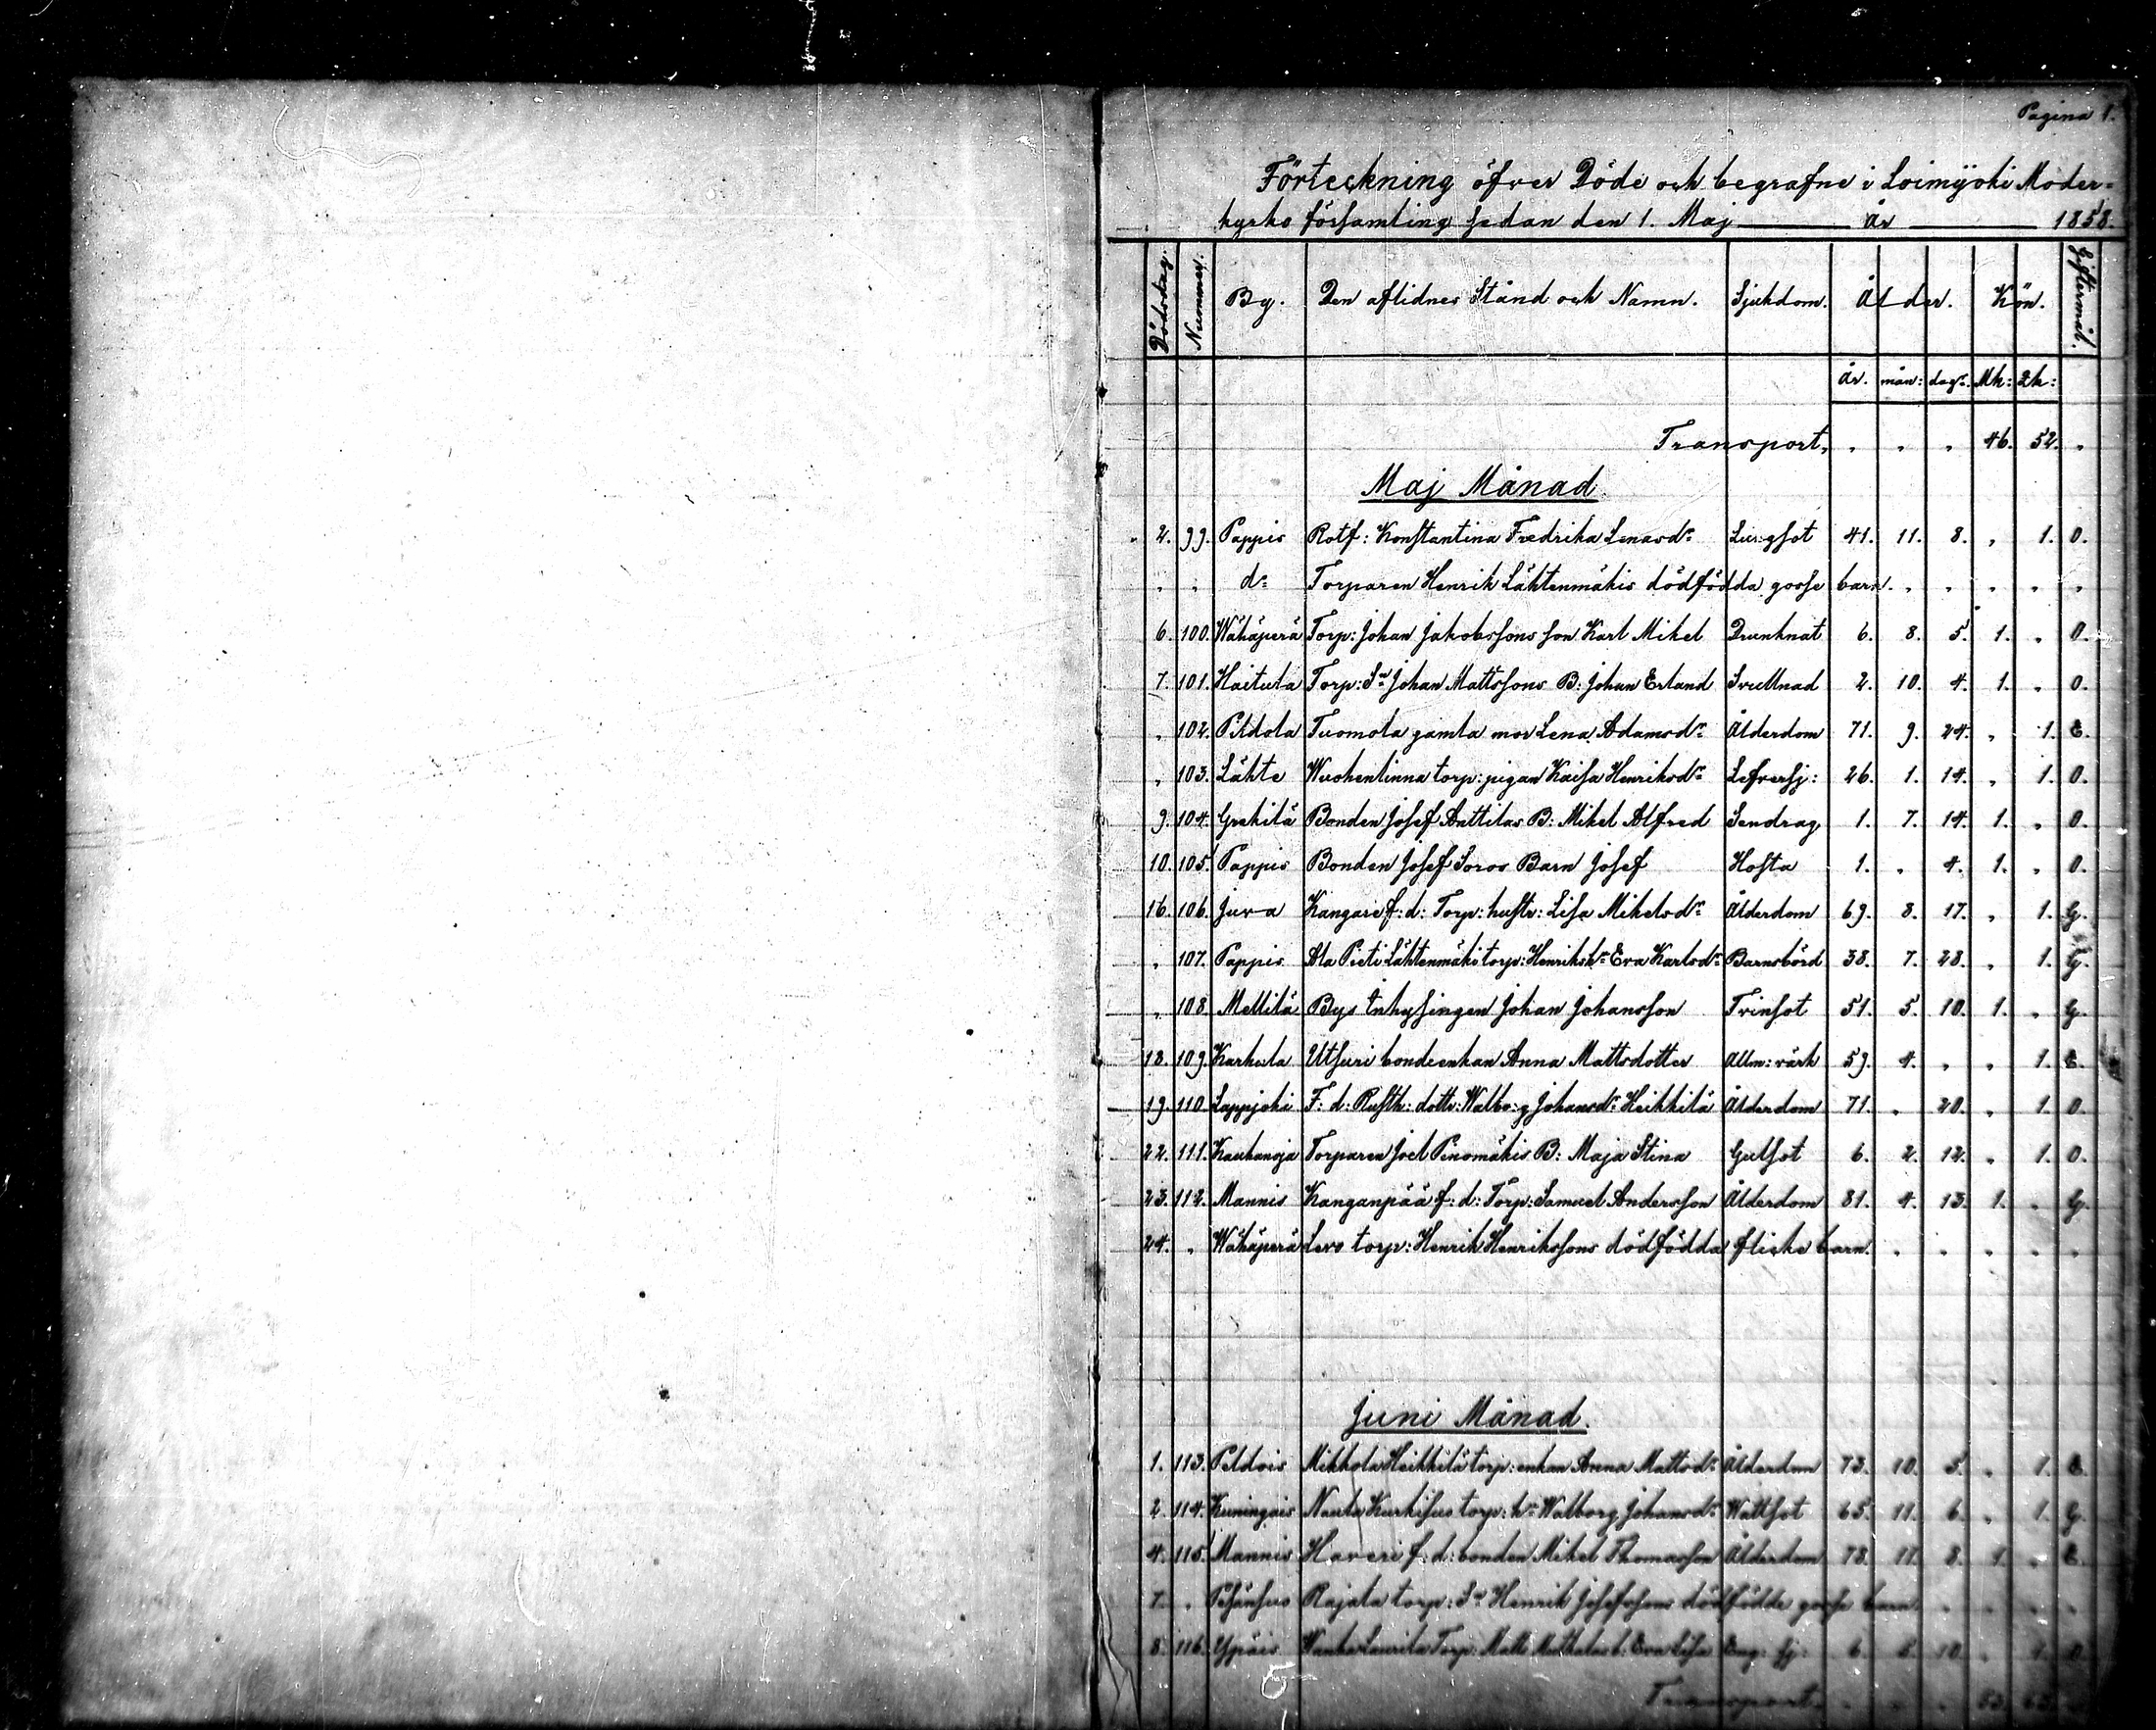 Pagina 1.
Förteckning öfver Döde och begrafne i Loimijoki Moder-
kyrko församling sedan den 1. Maj År 1858.
Dödsdag. Nummer. By. Den aflidnes Stånd och Namn. Sjukdom. Ålder. Kön. Giftermål.
År. mån: dag: Mk: Qk:
Transport, " " " 46. 52. "
Maj Månad.
2. 99. Pappis Rotf: Konstantina Fredrika Lenasdr Lungsot 41. 11. 8. " 1. O.
" " do Torparen Henrik Lähtenmäkis dödfödda gosse barn. " " " " "
6. 100. Wähäperä Torp: Johan Jakobssons son Karl Mikel Drunknat 6. 8. 5. 1. " O.
7. 101. Haitula Torp: Sn Johan Mattssons B: Johan Erland Svullnad 2. 10. 4. 1. " O.
" 102. Tuomola gamla mor Lena Adamsdr Ålderdom 71. 9. 24. " 1. E.
" 103. Lähte Wuohenlinna torp: pigan Kaisa Henriksdr Lefversj: 26. 1. 14. " 1. O.
9. 104. Grekilä Bonden Josef Anttilas B: Mikel Alfred Sendrag 1. 7. 14. 1. " O.
10. 105. Pappis Bonden Josef Soros Barn Josef Hosta 1. " 4. 1. " O.
16. 106. Juva Kangare f: d: Torp: hustr: Lisa Mikelsdr Ålderdom 69. 8. 17. " 1. G.
" 107. Pappis Ala Pieti Lähtenmäki torp: Henriks hu Eva Karlsdr Barnsbörd 38. 7. 28. " 1. G.
" 108. Mellilä Bys Inhysingen Johan Johansson Tvinsot 51. 5. 10. 1. " G.
18. 109. Karhula Utsuri bondeenkan Anna Mattsdotter Allm: värk 59. 4. " " 1. E.
19. 110 Lappjoki F: d: Rusth: dottr: Walborg Johansdr Heikkilä Ålderdom 71. " 20. " 1. O.
22. 111. Kauhanoja Torparen Joel Penomäkis B: Maja Stina Gulsot 6. 2. 12. " 1. O.
23. 112. Mannis Kanganpää f: d: Torp: Samuel Andersson Ålderdom 81. 4. 13. 1. " G.
24. " Wähäperä Levo torp: Henrik Henrikssons dödfödda flicke barn. " " " "
Juni Månad.
1. 113. Peldois Mikkola Heikkilä torp: enkan Anna Mattsdr Ålderdom 73. 10. 5. " 1. E.
2. 114. Kuningais Naula Kurkisuo torp: hu Walborg Johansdr Wattsot 65. 11. 6. " 1. G.
4. 115. Mannis Haveri f: d: bonden Mikel Thomasson Ålderdom 78. 11. 8. 1. " E.
7. " Pesänsuo Rajala torp: Sn Henrik Josefssons dödfödde gosse barn. " " " "
8. 116. Ypäis Torp: Matt b: Eva Lisa 6. 5. 10. " 1. O.
Transport.